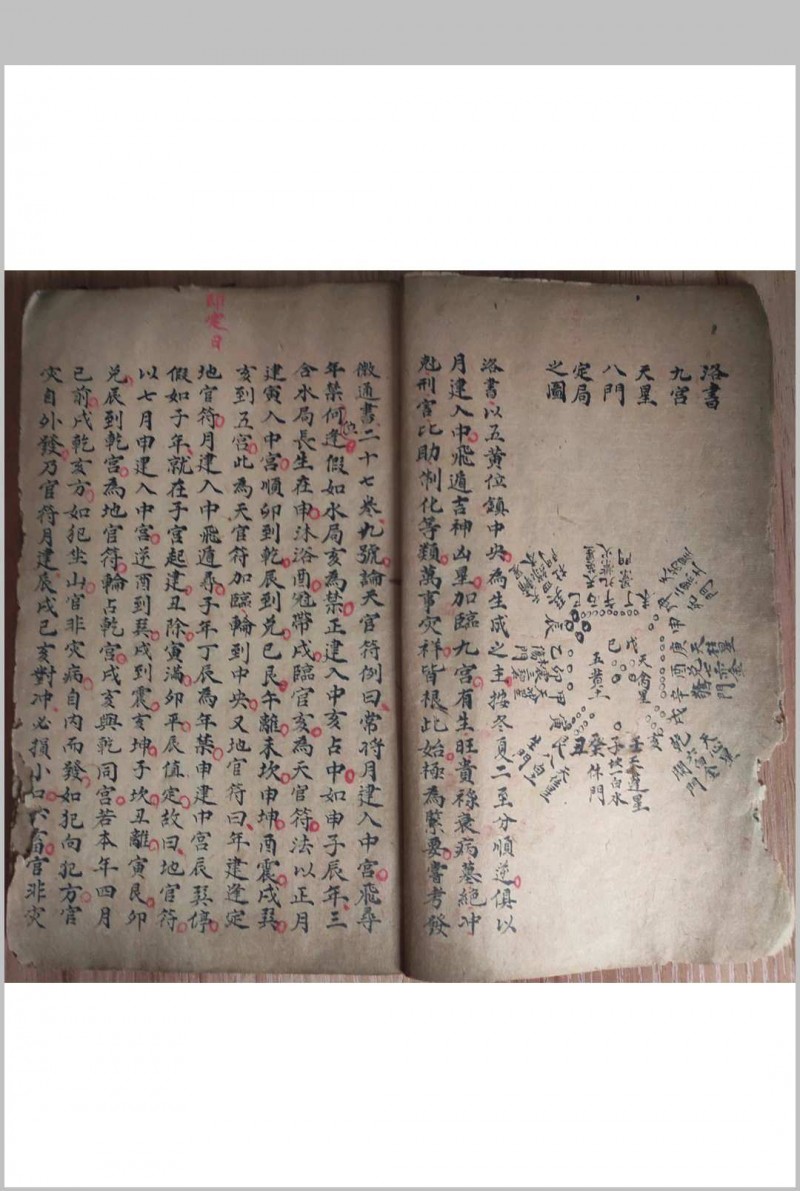 洛書
九宮
天星
八門
定局
之圖
戊
己
天禽星
五黃土
壬天蓬星
子坎一白水
癸休門
亥
丑
甲
卯
乙
辰
巳
丁
未
申
庚
酉
辛
戌
洛書以五黃位鎮中央為生成之主按冬夏二至分順逆俱以
月建入中飛遁吉神凶星加臨九宮有生旺貴祿衰病墓絕冲
尅刑害比助制化等類萬事灾祥皆根此始極為緊要嘗考發
微通書二十七卷九號論天官符例曰常将月建入中宮飛尋
年禁何位逢假如水局亥為禁正建入中亥占中如申子辰年三
合水局長生在申沐浴酉冠帶戌臨官亥為天官符法以正月
建寅入中宮順卯到乾辰到兌巳艮午離未坎申坤酉震戌巽
亥到五宮此為天官符加臨輪到中央又地官符曰年建逢定
地官符月建入中飛遁尋子年丁辰為年禁申建中宮辰巽停
即定日
假如子年就在子宮起建丑除寅滿卯平辰值定故曰地官符
以七月申建入中宮逆酉到巽戌到震亥坤子坎丑離寅艮卯
兌辰到乾宮為地官符輪占乾宮戌亥與乾同宮若本年四月
巳前戌乾亥方如犯坐山官非灾病自内而發如犯向犯方官
灾自外發乃官符月建辰戌巳亥對冲必損小口六畜官非灾